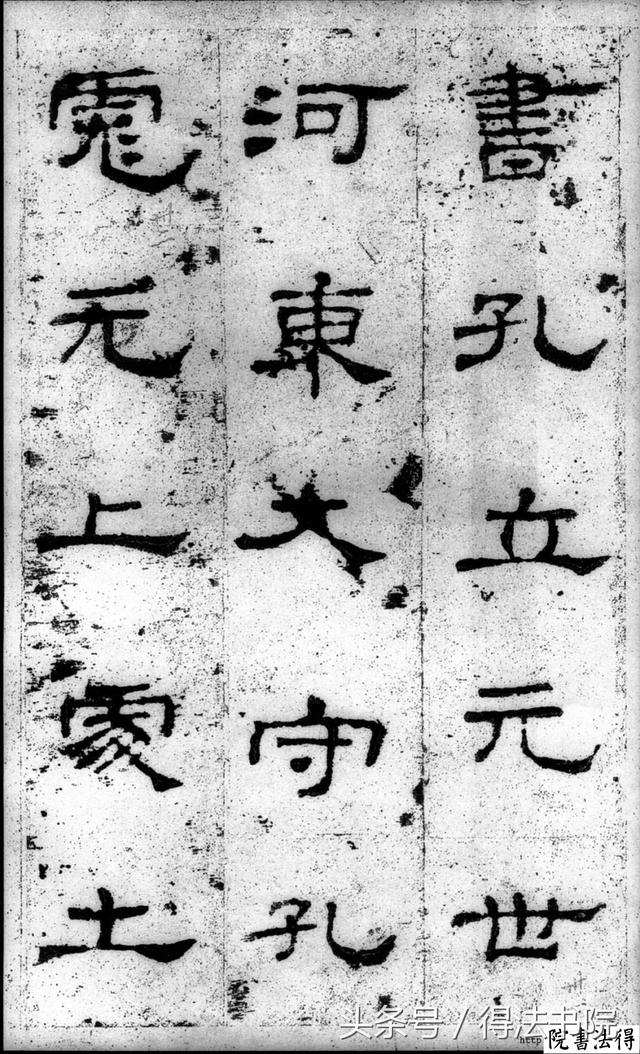 書孔立元世
河東大守孔
彪元上處士
头条号 / 得法书院
http 院書法得